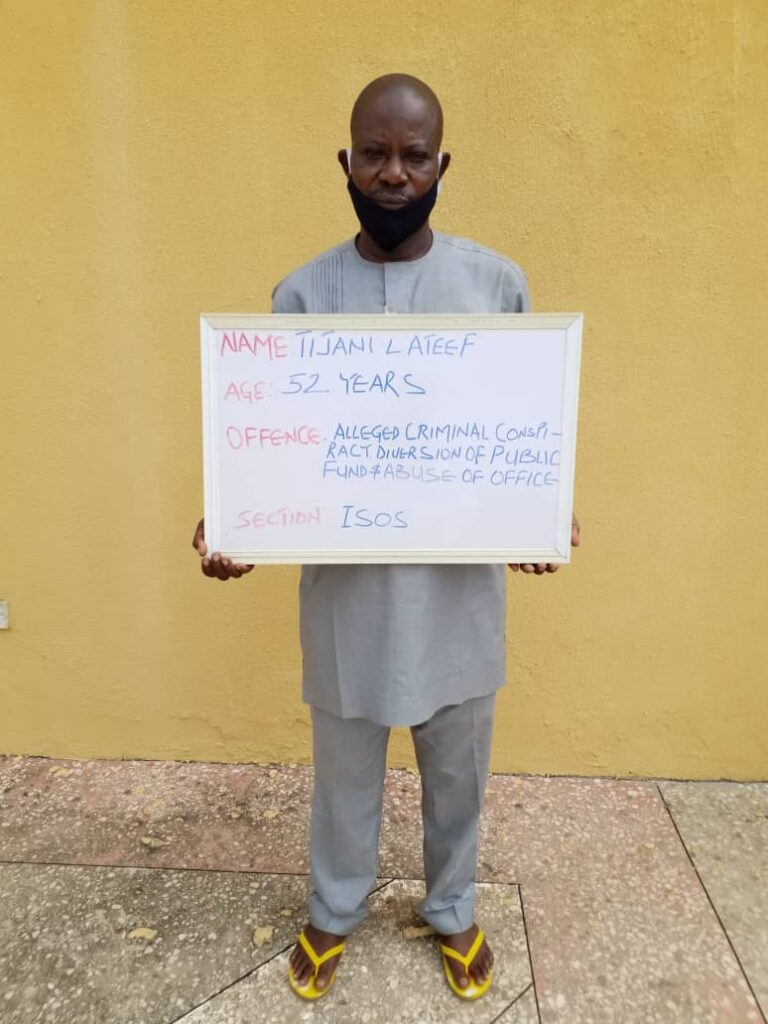 NAME: TIJANI LATEEF
AGE: 52 YEARS
OFFENCE. ALLEGED CRIMINAL CONSPI-
RACT. DIVERSION OF PUBLIC
FUND & ABUSE OF OFFICE
SECTION: ISOS